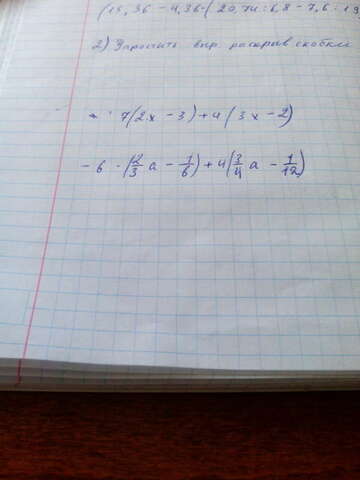 (15,36 - 4,36 · (20,74 : 6,8 - 7,6 : 19
2) Упростить выр. раскрыв скобки
7(2x - 3) + 4(3x - 2)
- 6 · (2/3 a - 1/6) + 4(3/4 a - 1/12)